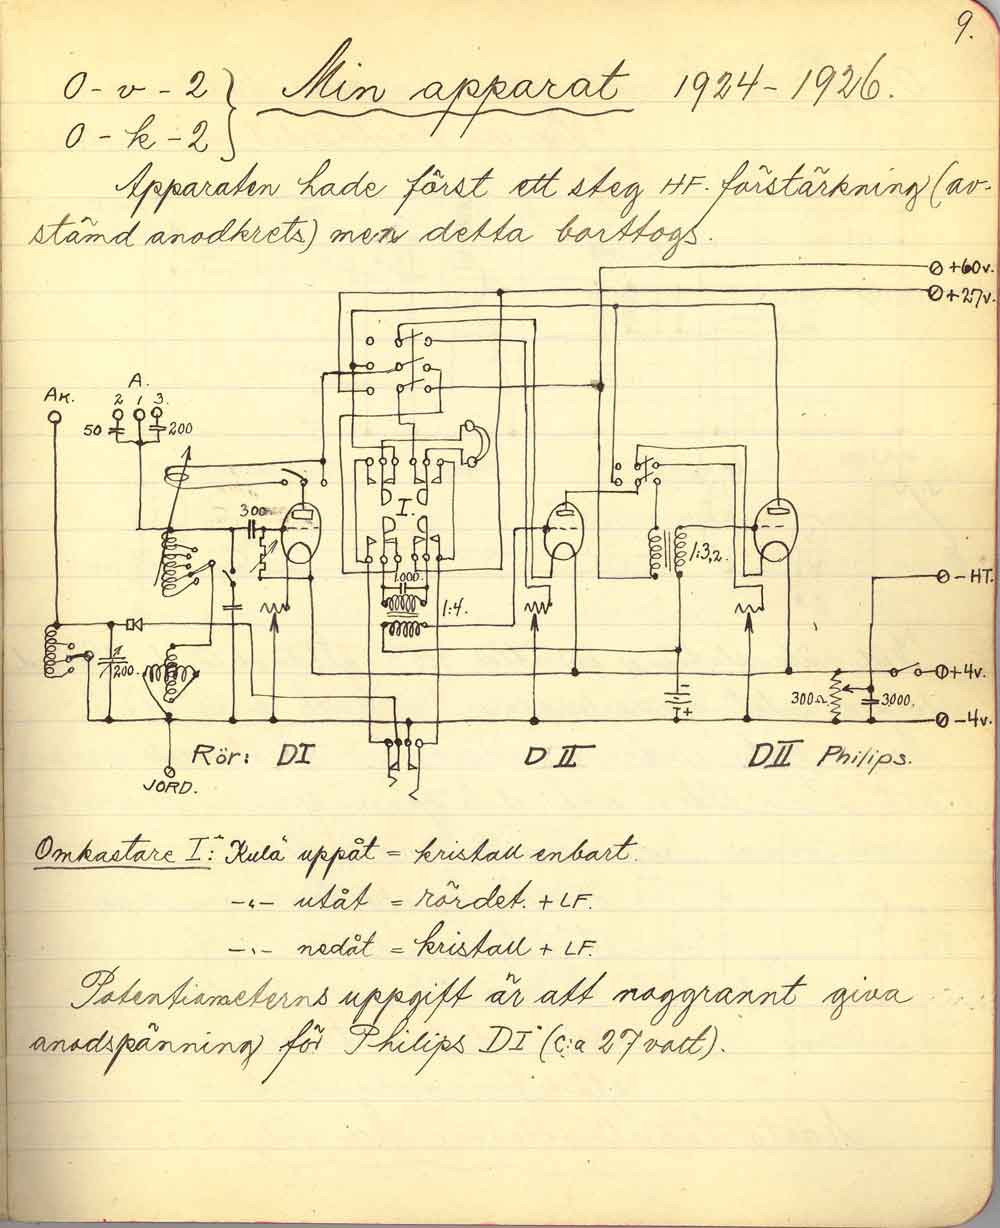 9.
O - v - 2 } Min apparat 1924 - 1926.
O - k - 2
Apparaten hade först ett steg HF. förstärkning (av-
stämd anodkrets) men detta borttogs.
+60v.
+27v.
AK.
A.
2 1 3.
50 200
300
I.
1000.
1:4.
1:3,2.
-HT.
200.
+4v.
300Ω. 3000.
-4v.
Rör: DI DII DII Philips.
JORD.
Omkastare I: "Kula" uppåt = kristall enbart.
-"- utåt = rördet. + LF.
-"- nedåt = kristall + LF.
Potentiometerns uppgift är att noggrannt giva
anodspänning för Philips DI (c:a 27 vott).